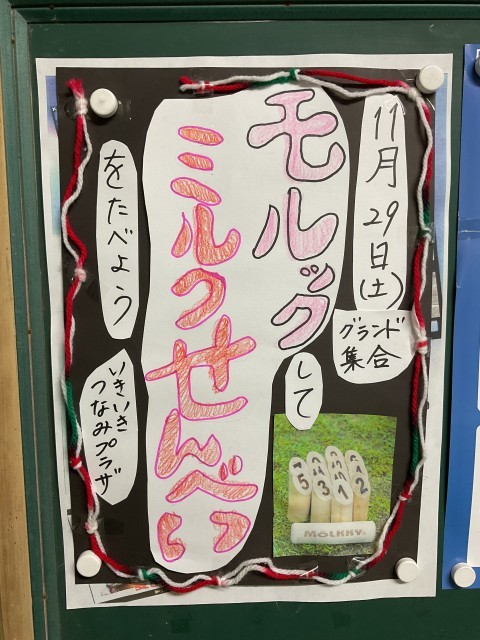 11月29日(土)
グランド
集合
モルック
して
ミルクせんべい
をたべよう
いきいき
つなみプラザ
MOLKKY
5 3 1 2